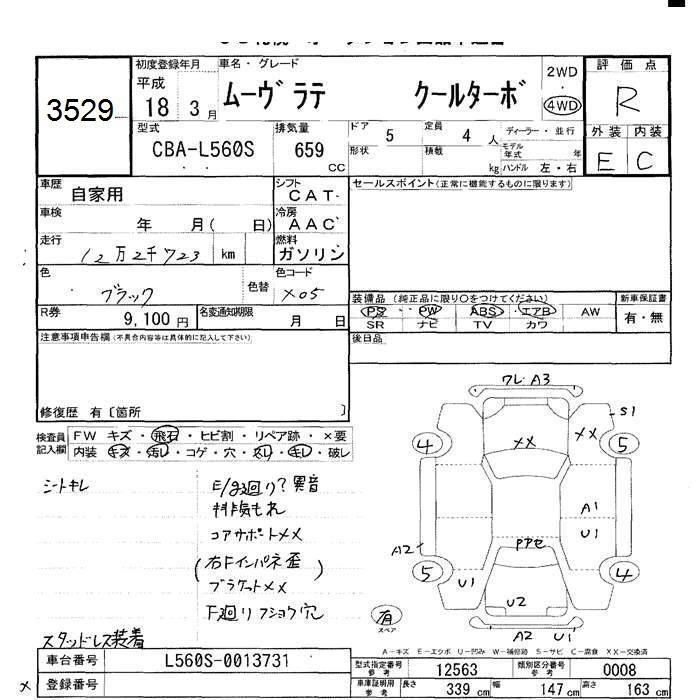 3529
初度登録年月
平成
18 3 月
車名・グレード
ムーヴ ラテ クールターボ
2WD
4WD
評価点
R
外装 内装
E C
型式
CBA-L560S
排気量
659
CC
ドア 5
定員 4 人
ディーラー・並行
形状
積載
kg
モデル年式 年
ハンドル 左・右
車歴
自家用
シフト
CAT
セールスポイント(正常に機能するものに限ります)
車検
年 月( 日)
冷房
AAC
走行
12万2千723 km
燃料
ガソリン
色
ブラック
色替
色コード
X05
R券
9,100 円
名変通知期限
月 日
装備品 (純正品に限り○をつけてください)
PS PW ABS エアB AW
SR ナビ TV カワ
新車保証書
有・無
注意事項申告欄(不具合内容等は具体的に記入して下さい)
後日品
修復歴 有〔箇所 〕
検査員記入欄
FW キズ・飛石・ヒビ割・リペア跡・×要
内装 キズ・汚レ・コゲ・穴・スレ・キレ・破レ
シートキレ
E/g廻り?異音
コアサポートメメ
(右Fインパネ歪)
ブラケットメメ
F廻リフショウ穴
スタッドレス装着
ワレ・A3
S1
XX
XX
4
5
A1
U1
A2
PPセ
5
U1
4
U2
有
スペア
A2 U1
A-キズ E-エクボ U-凹み W-補修跡 S-サビ C-腐食 XX-交換済
車台番号
L560S-0013731
型式指定番号
参考
12563
類別区分番号
参考
0008
登録番号
車庫証明用
参考
長さ 339 cm
幅 147 cm
高さ 163 cm